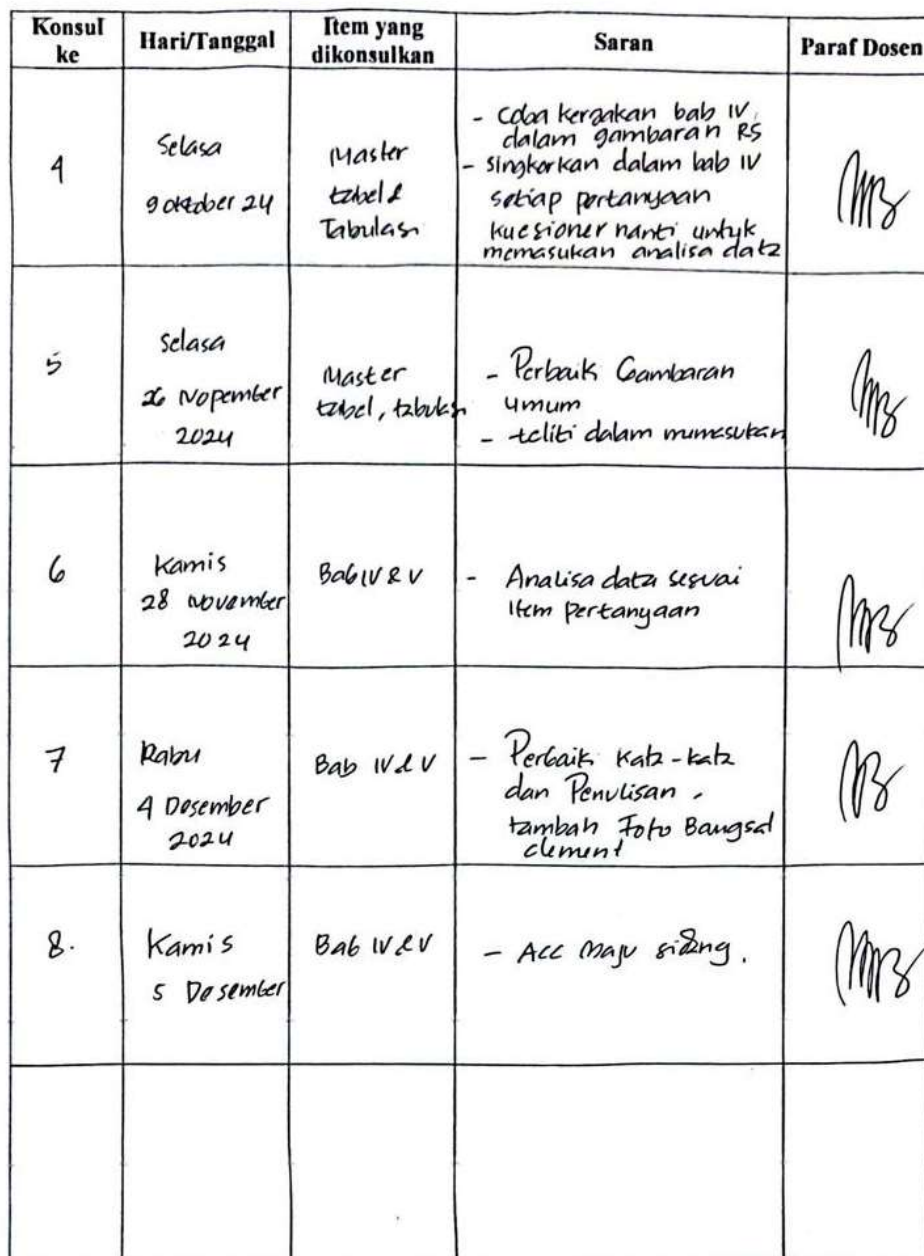 Konsul ke
Hari/Tanggal
Item yang dikonsulkan
Saran
Paraf Dosen
4
Selasa
9 oktober 24
Master
tabel &
Tabulasi
- Coba kerjakan bab IV,
dalam gambaran RS
- Singkorkan dalam bab IV
setiap pertanyaan
kuesioner nanti untuk
memasukan analisa data
5
Selasa
26 Nopember
2024
Master
tabel, tabulasi
- Perbaik Gambaran
umum
- teliti dalam memasukan
6
Kamis
28 November
2024
Bab IV & V
- Analisa data sesuai
Item pertanyaan
7
Rabu
4 Desember
2024
Bab IV & V
- Perbaik kata-kata
dan Penulisan,
tambah Foto Bangsal
clement
8.
Kamis
5 Desember
Bab IV & V
- Acc maju sidang.